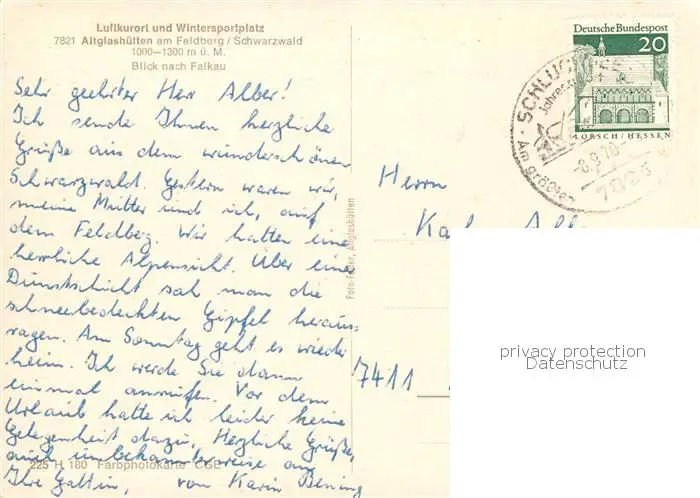 Luftkurort und Wintersportplatz
7821 Altglashütten am Feldberg / Schwarzwald
1000—1300 m ü. M.
Blick nach Falkau
Sehr geehrter Herr Alber!
Ich sende Ihnen herzliche
Grüße aus dem wunderschönen
Schwarzwald. Gestern waren wir,
meine Mutter und ich, auf
dem Feldberg. Wir hatten eine
herrliche Alpensicht. Über einer
Dunstschicht sah man die
schneebedeckten Gipfel heraus-
ragen. Am Sonntag geht es wieder
heim. Ich werde Sie dann
einmal anrufen. Vor dem
Urlaub hatte ich leider keine
Gelegenheit dazu. Herzliche Grüße,
auch unbekannterweise an
Ihre Gattin, von Karin Bening
225 H 180 Farbphotokarte CGE
Foto-Feger, Altglashütten
Deutsche Bundespost
20
LORSCH/HESSEN
SCHLUCHSEE
Am größten
-8.9.70-
Herrn
7411
privacy protection
Datenschutz